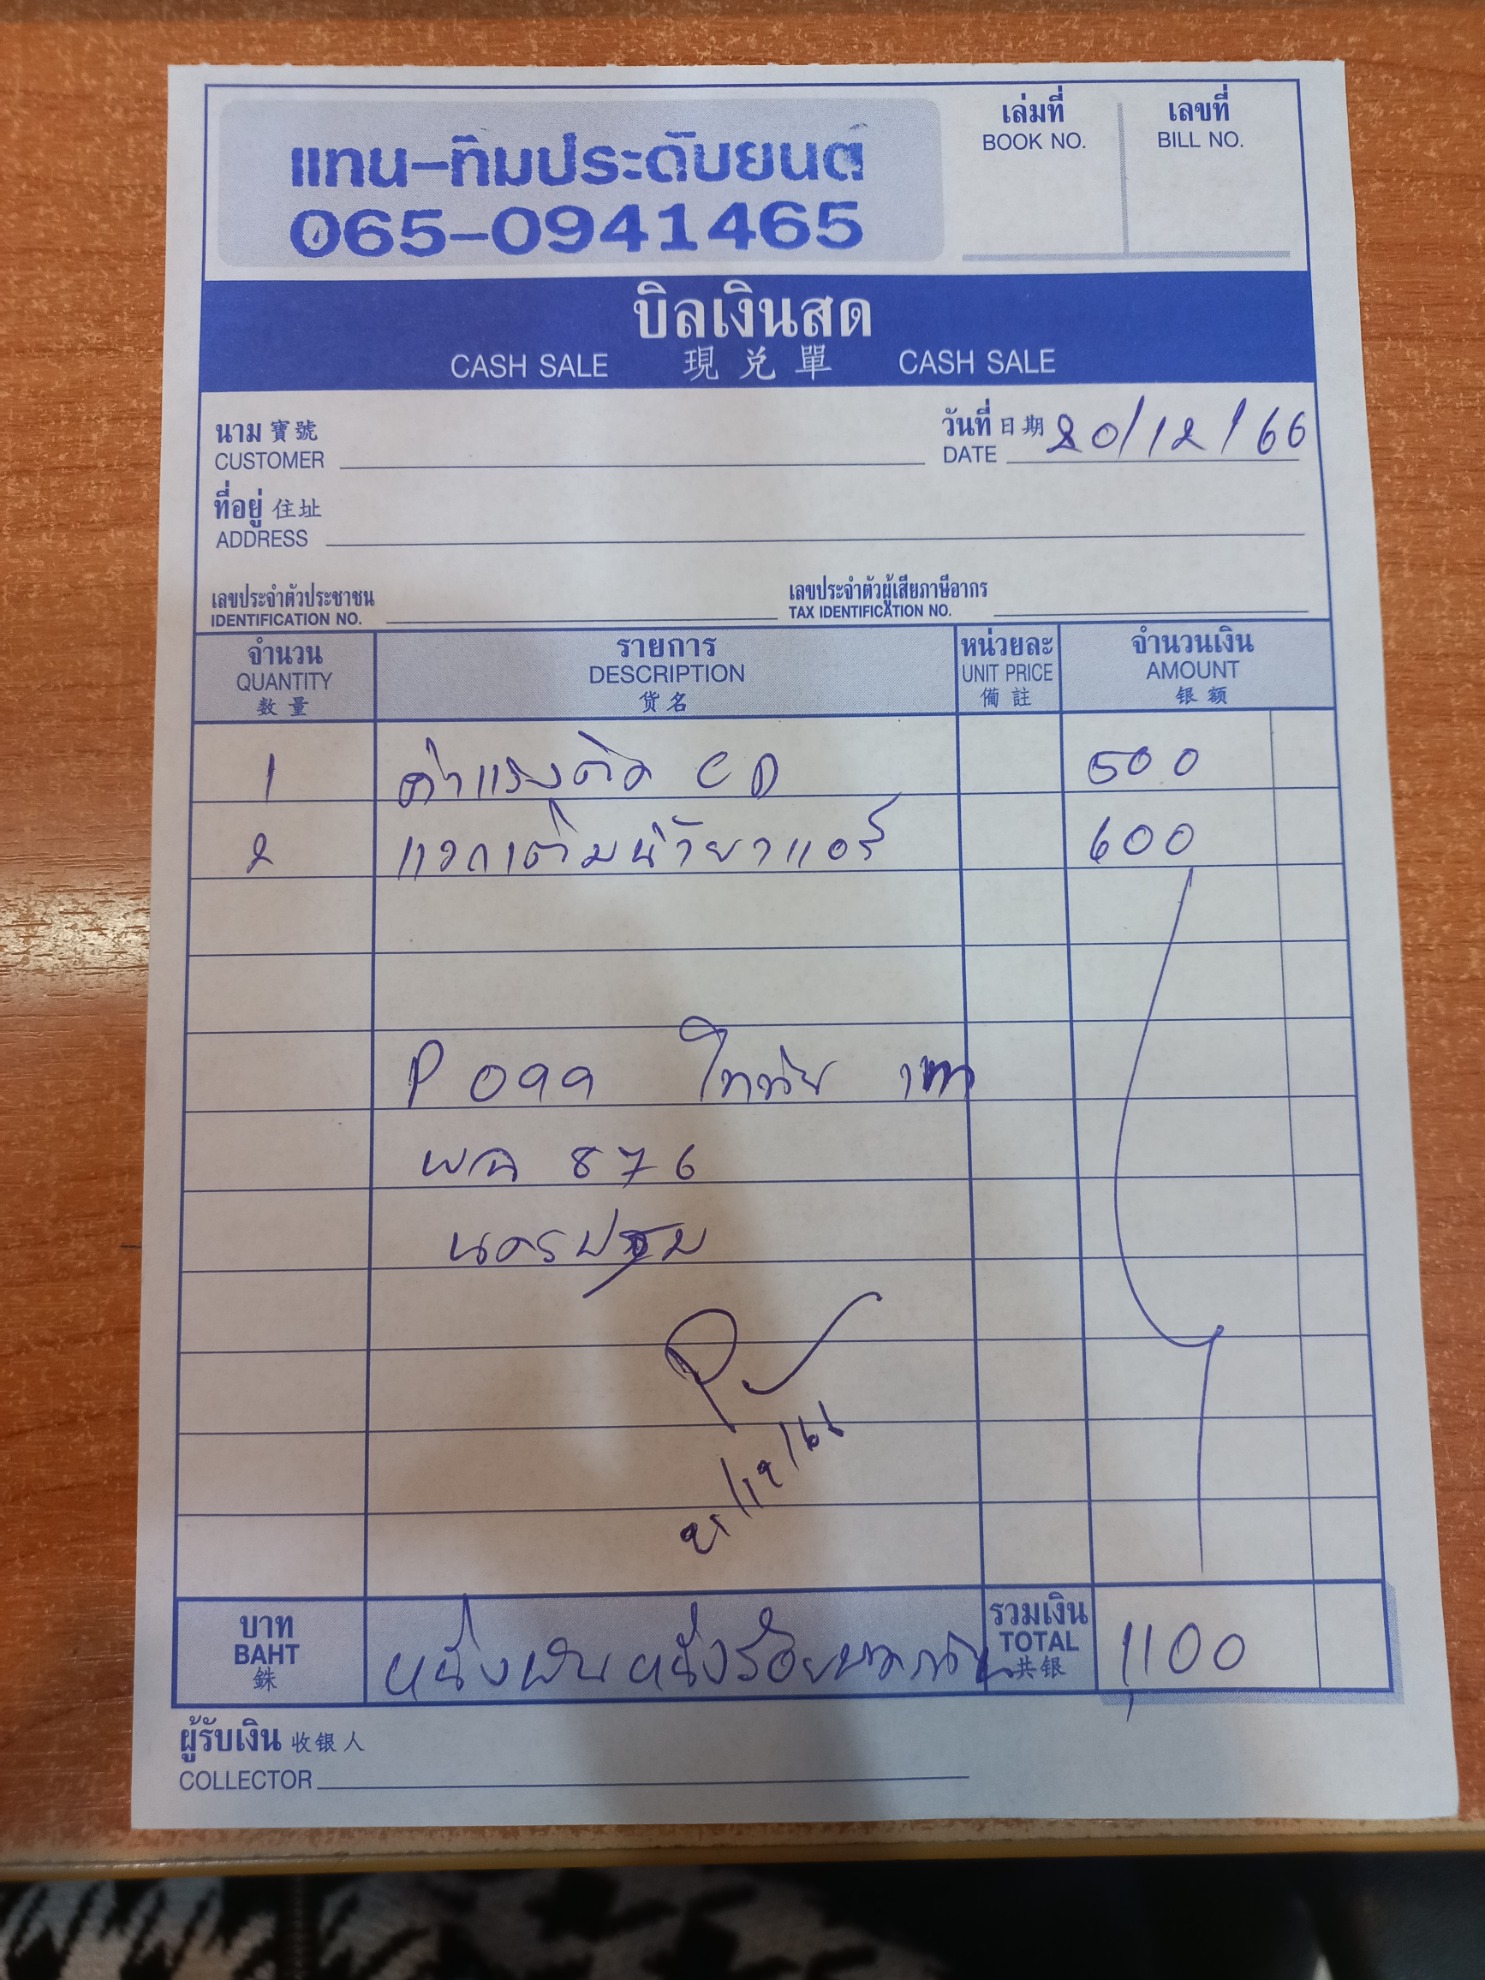 แทน-ทิมประดับยนต์
065-0941465
เล่มที่ เลขที่
BOOK NO. BILL NO.
บิลเงินสด
CASH SALE 現兑單 CASH SALE
นาม 寳號 วันที่ 日期 20/12/66
CUSTOMER DATE
ที่อยู่ 住址
ADDRESS
เลขประจำตัวประชาชน เลขประจำตัวผู้เสียภาษีอากร
IDENTIFICATION NO. TAX IDENTIFICATION NO.
จำนวน รายการ หน่วยละ จำนวนเงิน
QUANTITY DESCRIPTION UNIT PRICE AMOUNT
数量 货名 備註 银额
1 ค่าแรงติด CD 500
2 แวคเติมน้ำยาแอร์ 600
P 099
876
นครปฐม
21/12/66
บาท หนึ่งพันหนึ่งร้อยบาทถ้วน รวมเงิน 1,100
BAHT TOTAL
銖 共银
ผู้รับเงิน 收银人
COLLECTOR